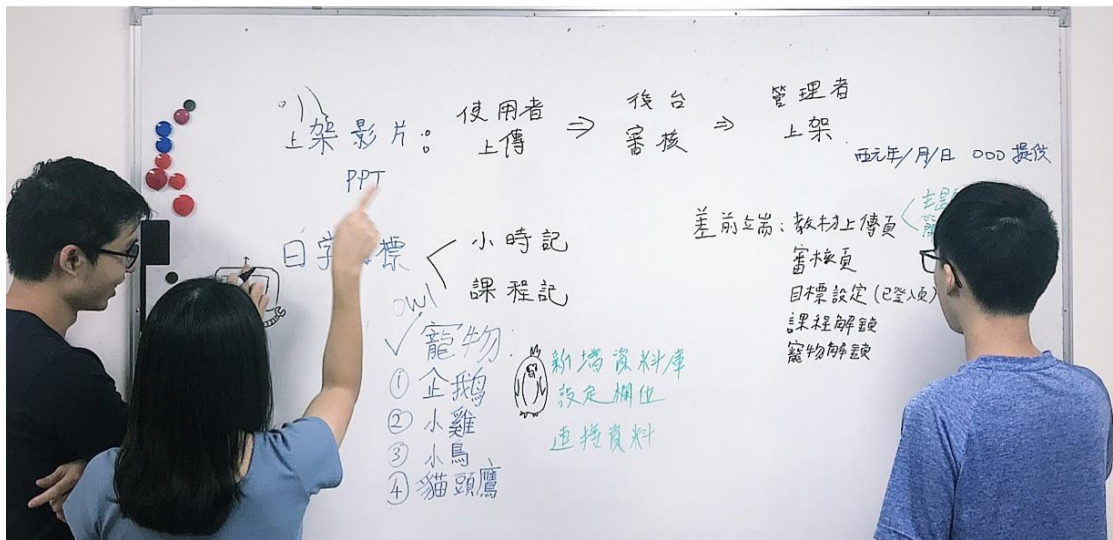 上架影片：
PPT
使用者
上傳
⇒
後台
審核
⇒
管理者
上架
西元年/月/日 OOO 提供
日 標
小時記
課程記
owl
✓寵物：
① 企鵝
② 小雞
③ 小鳥
④ 貓頭鷹
新增資料庫
設定欄位
連接資料
差前端：教材上傳頁
審核頁
目標設定(已登入頁)
課程解鎖
寵物解鎖